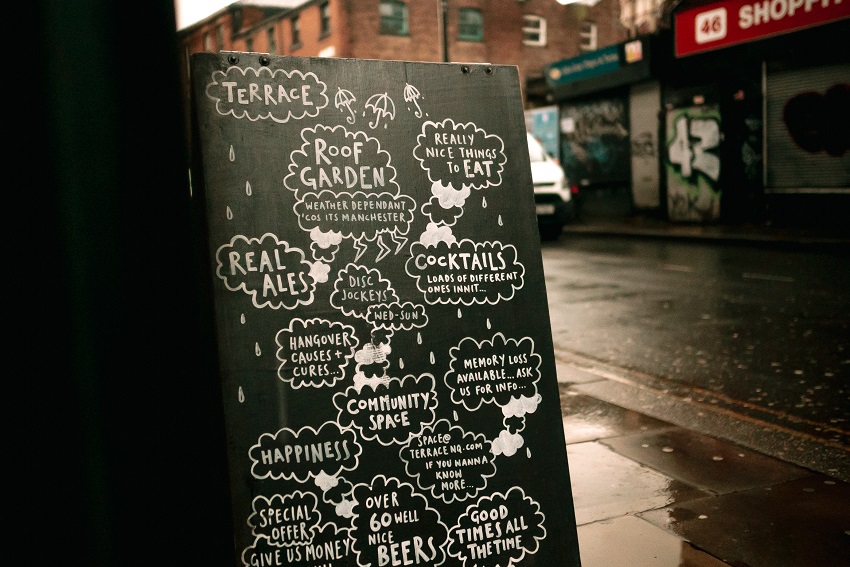 TERRACE
ROOF
GARDEN
WEATHER DEPENDANT
'COS ITS MANCHESTER
REALLY
NICE THINGS
TO EAT
REAL
ALES
COCKTAILS
LOADS OF DIFFERENT
ONES INNIT...
DISC
JOCKEYS
WED-SUN
HANGOVER
CAUSES +
CURES...
MEMORY LOSS
AVAILABLE... ASK
US FOR INFO...
COMMUNITY
SPACE
HAPPINESS
SPACE@
TERRACENQ.COM
IF YOU WANNA
KNOW
MORE...
SPECIAL
OFFER
GIVE US MONEY
OVER
60 WELL
NICE
BEERS
GOOD
TIMES ALL
THE TIME
46 SHOPFIT